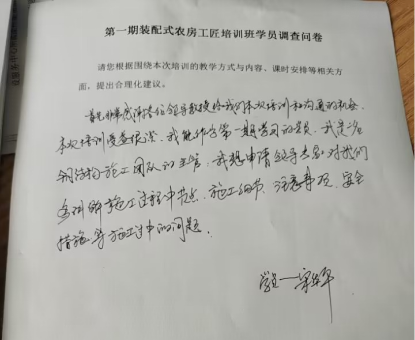 第一期装配式农房工匠培训班学员调查问卷
请您根据围绕本次培训的教学方式与内容、课时安排等相关方
面，提出合理化建议。
首先非常感谢各位领导教授给我们本次培训和沟通的机会,
本次培训受益很深。我能作为第一期学习的学员，我是
钢结构施工团队的主管，我想申请领导专家对我们
多讲解施工过程中节点、施工细节、注意事项、安全
措施等施工过程中的问题。
学员